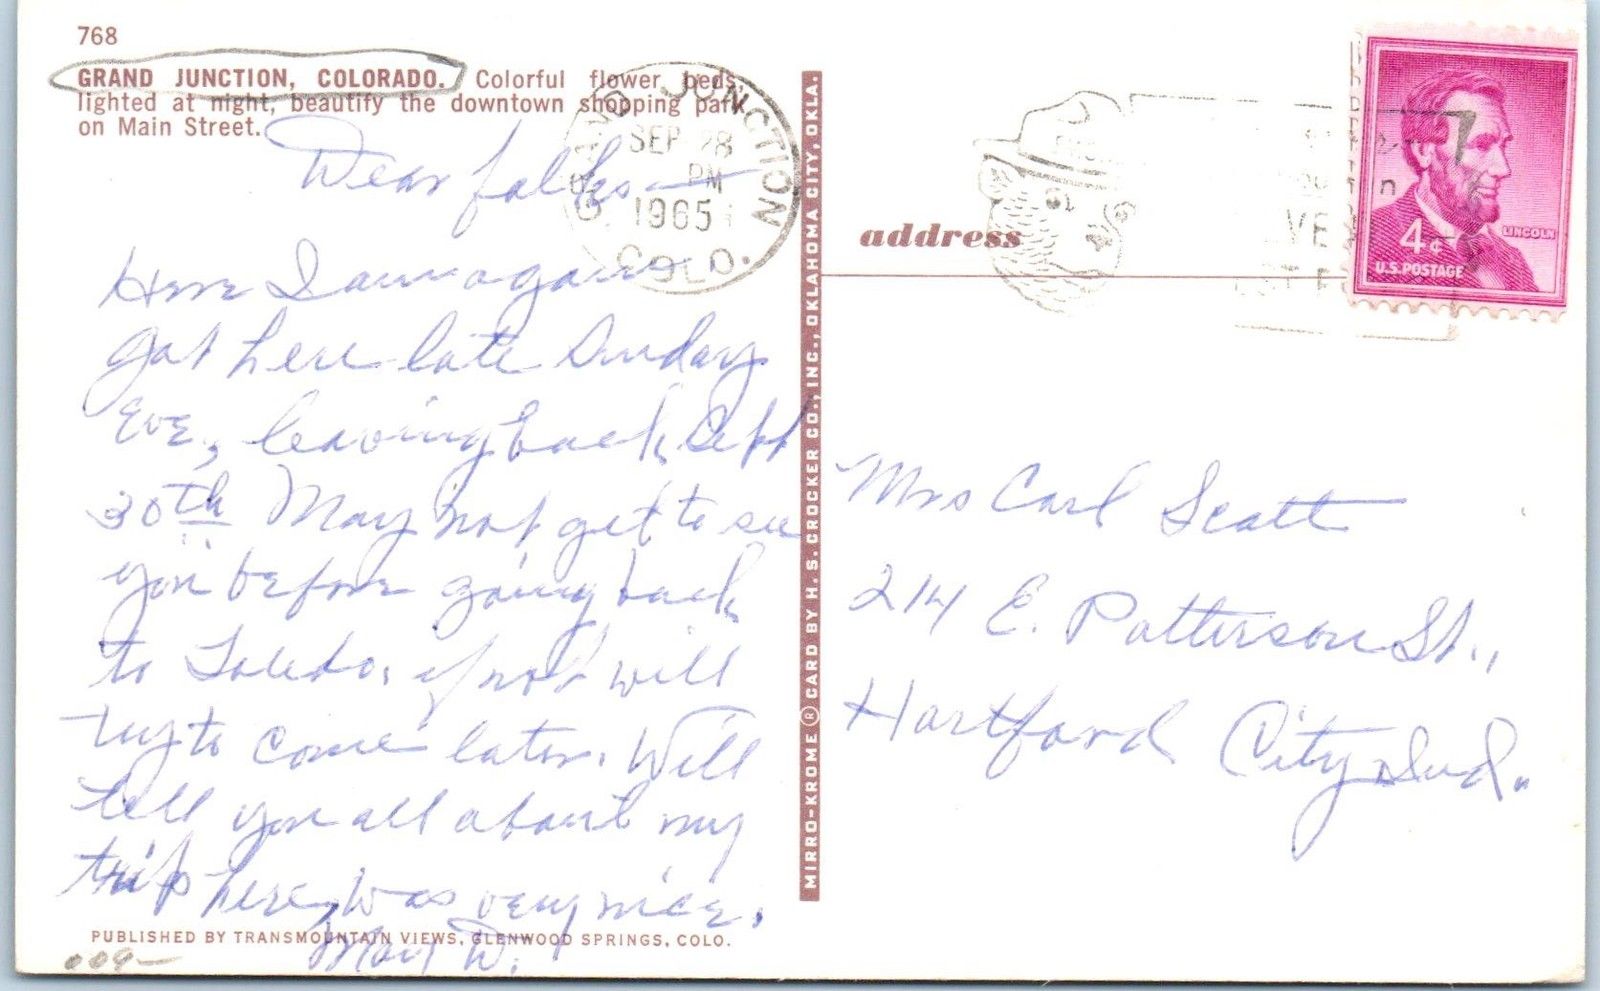 768
GRAND JUNCTION, COLORADO. Colorful flower beds,
lighted at night, beautify the downtown shopping park
on Main Street.
GRAND JUNCTION
SEP 28
PM
1965
COLO.
Dear folks —
Here I am again
got here late Sunday
Eve, leaving back Sept
30th May not get to see
you before going back
to Toledo, if not will
try to come later. Will
tell you all about my
trip here, was very nice.
May W.
PUBLISHED BY TRANSMOUNTAIN VIEWS, GLENWOOD SPRINGS, COLO.
009-
MIRRO-KROME ® CARD BY H. S. CROCKER CO., INC., OKLAHOMA CITY, OKLA.
address
LINCOLN
4¢
U.S. POSTAGE
Mrs Carl Scott
214 E. Patterson St.,
Hartford City, Ind.